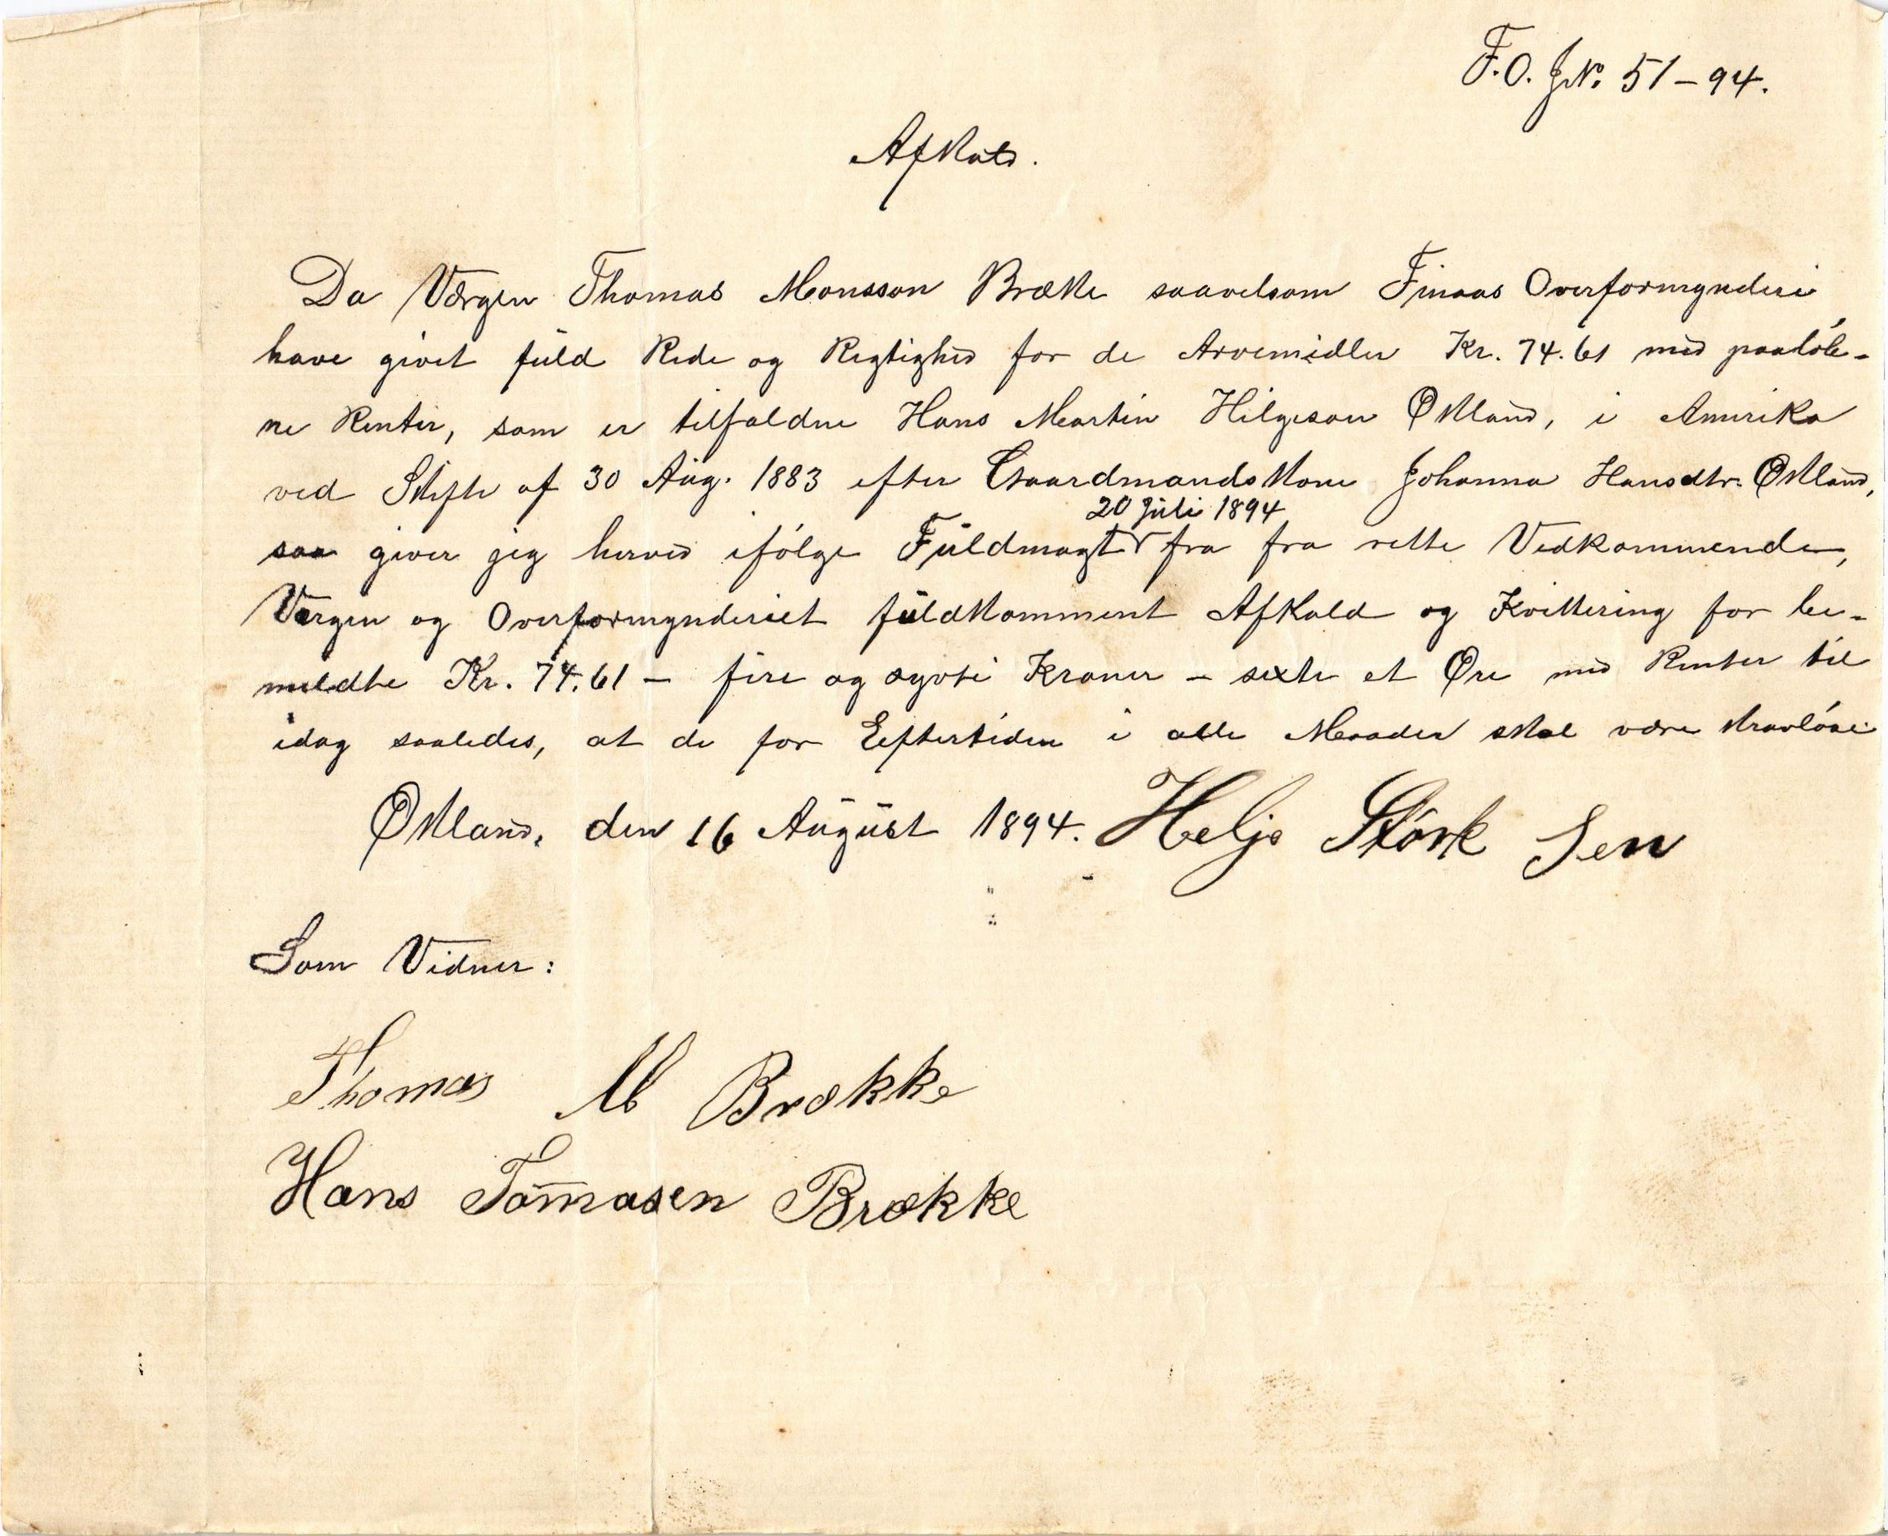 F.O. J№. 51-94.
Afkald.
Da Værgen Thomas Monsson Brække saavelsom Finaas Overformynderi
have givet fuld Rede og Regtighed for de Arvemidler Kr. 74.61 med paaløb-
ne Renter, som er tilfaldne Hans Martin Helgeson Økland, i Amerika
ved Skifte af 30 Aug. 1883 efter Gaardmandskone Johanna Hansdtr. Økland,
20 Juli 1894
saa giver jeg herved ifølge Fuldmagt fra fra rette Vedkommende,
Værgen og Overformynderiet fuldkomment Afkald og Kvittering for be-
meldte Kr. 74.61 – fire og sytti Kroner – sexti et Øre med Renter til
idag saaledes, at de for Eeftertiden i alle Maader skal være kravløse
Økland, den 16 August 1894. Helje Størk Sen
Som Vidner:
Thomas M Brække
Hans Tomasen Brække